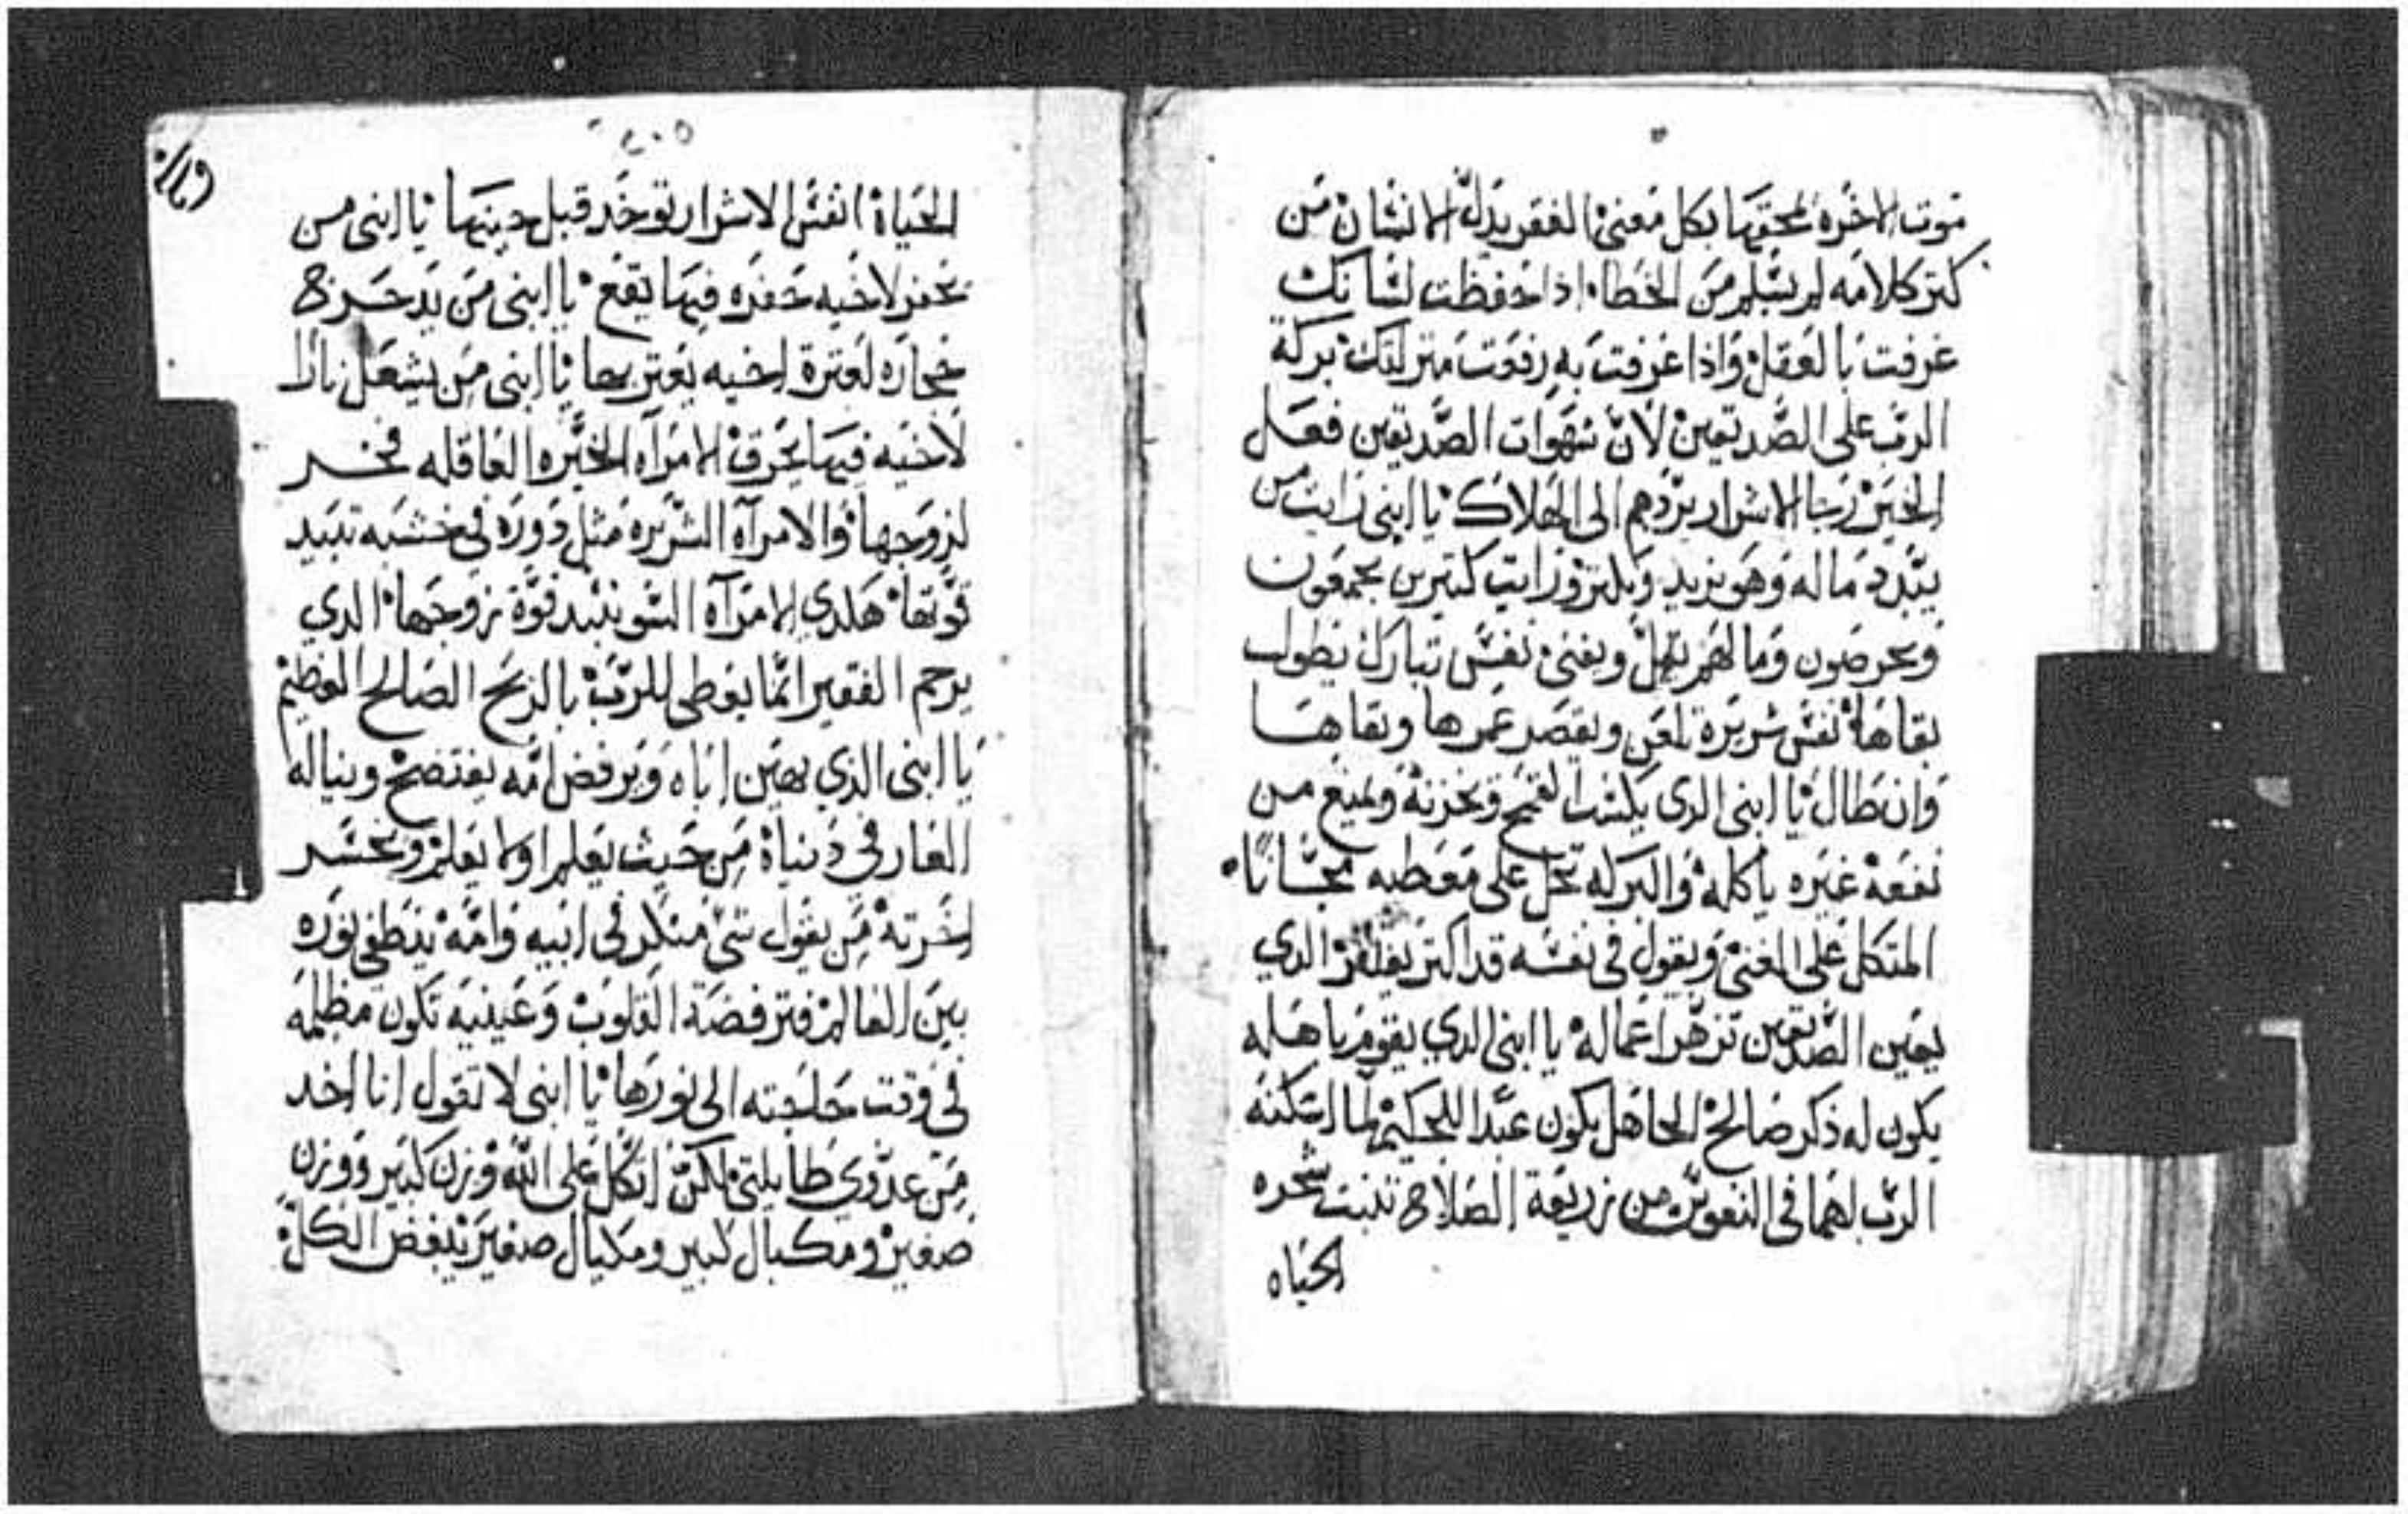 موت الاخره لمحقها بكل معنى الفقر يدل الانسان من
كتر كلامه لم يسلم من الخطا اذا حفظت لسانك
عرفت بالعقل واذا عرفت به رفعت منزلتك بركة
الرب على الصديقين لان شهوات الصديقين فعل
الخير رجا الاشرار يردهم الى الهلاك يا ابنى رايت من
يبدد ماله وهو يزيد ويكتر ورايت كتيرين يجمعون
ويحرصون وما لهم يقل ويفنى نفس تبارك يطول
بقاها نفس شريرة تلعن ويقصر عمرها وبقاها
وان طال يا ابنى الدى يكنب القمح ويخزنه ويمنع من
نفعه غيره ياكله والبركه تحل على معطيه مجانا
المتكل على الغنى ويقول فى نفسه قد اكتر يفتقر الدي
يعين الصديقين تزهر اعماله يا ابنى الدي يقوم باهله
يكون له ذكر صالح الجاهل يكون عبدا للحكيم لما امكنه
الرب لهما فى من زريعة الصلاح تنبت شجره
الحياه
٤٠٥
الحياة انفس الاشرار توخد قبل حينها يا ابنى من
يحفر لاخيه حفره فيها يقع يا ابنى من يدحرج
حجاره لعترة اخيه يعتر بها يا ابنى من يشعل نارا
لاخيه فيها يحرق الامراه الخيره العاقله فخر
لزوجها والامراه الشريره متل دوره فى خشبه تبيد
قوتها هكدي الامراه السو تبيد قوة زوجها الدي
يرحم الفقير انما يعطى للرب بالربح الصالح العظيم
يا ابنى الذي يهين اباه ويرفض امه يفتضح ويناله
العار في دنياه من حيث يعلم او لا يعلم ويخسر
اخرته من يقول شى منكر فى ابيه وامه ينطفى نوره
بين العالم فترفضه القلوب وعينيه تكون مظلمه
فى وقت حاجته الى نورها يا ابنى لا تقول انا اخد
من عدوي طايلتى لكن اتكل على الله وزن كبير ووزن
صغير ومكيال كبير ومكيال صغير يبغض الكل